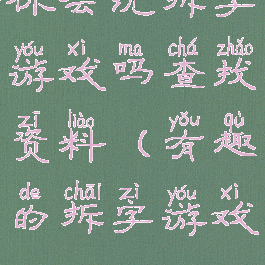 你会玩拆字
yóu xì ma chá zhǎo
游戏吗查找
zī liào yǒu qù
资料(有趣
de chāi zì yóu xì
的拆字游戏